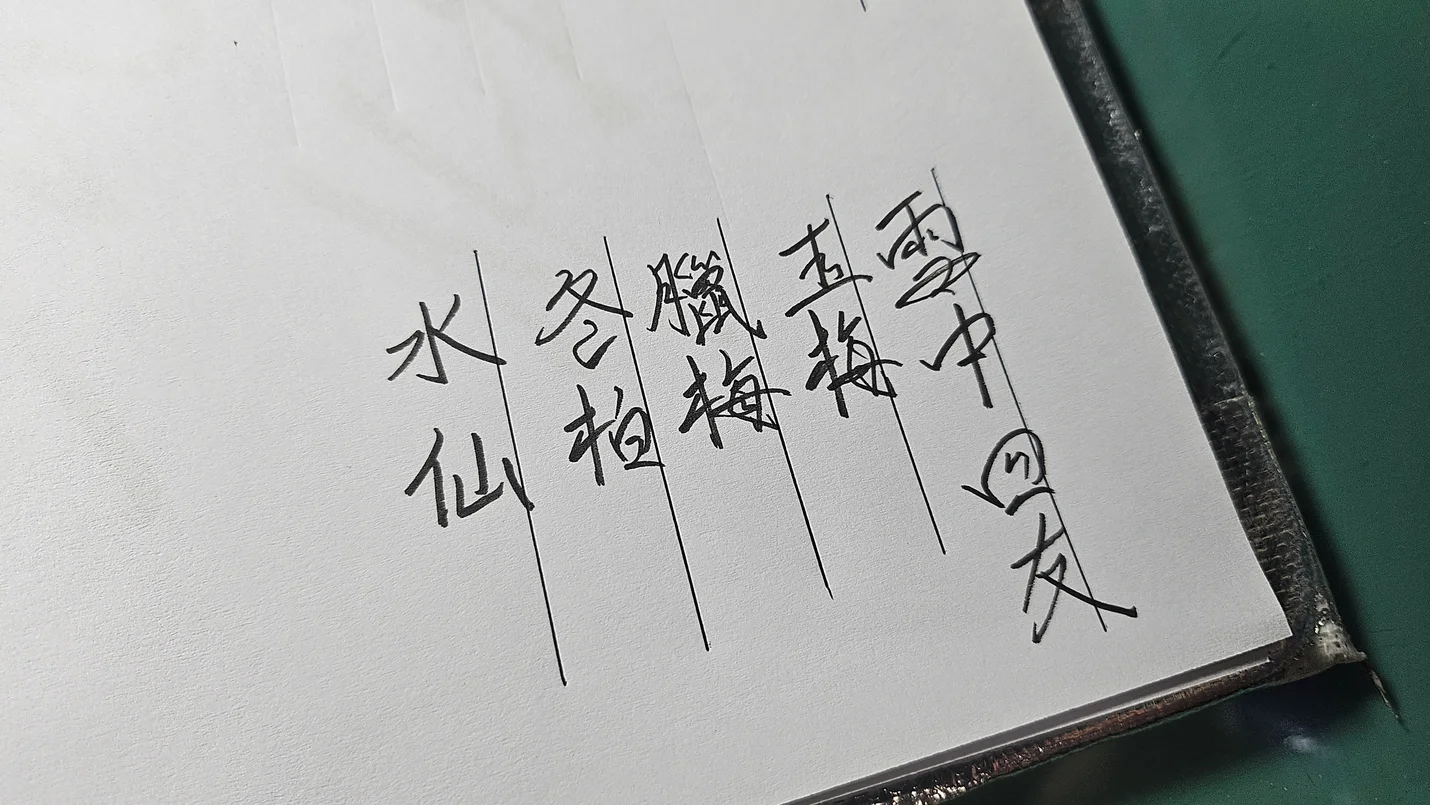 雪中四友
梅
臘梅
冬柏
水仙